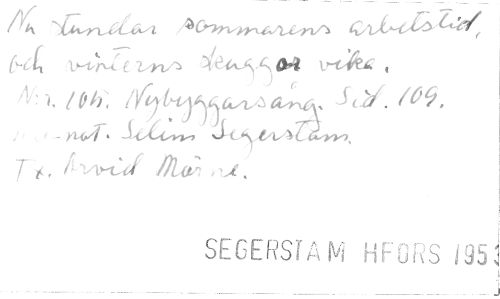 Nu stundar sommarens arbetstid,
och vinterns skuggor vika.
N:r. 105. Nybyggarsång. Sid. 109.
not. Selim Segerstam.
Tx. Arvid Mörne.
SEGERSTAM HFORS 1953